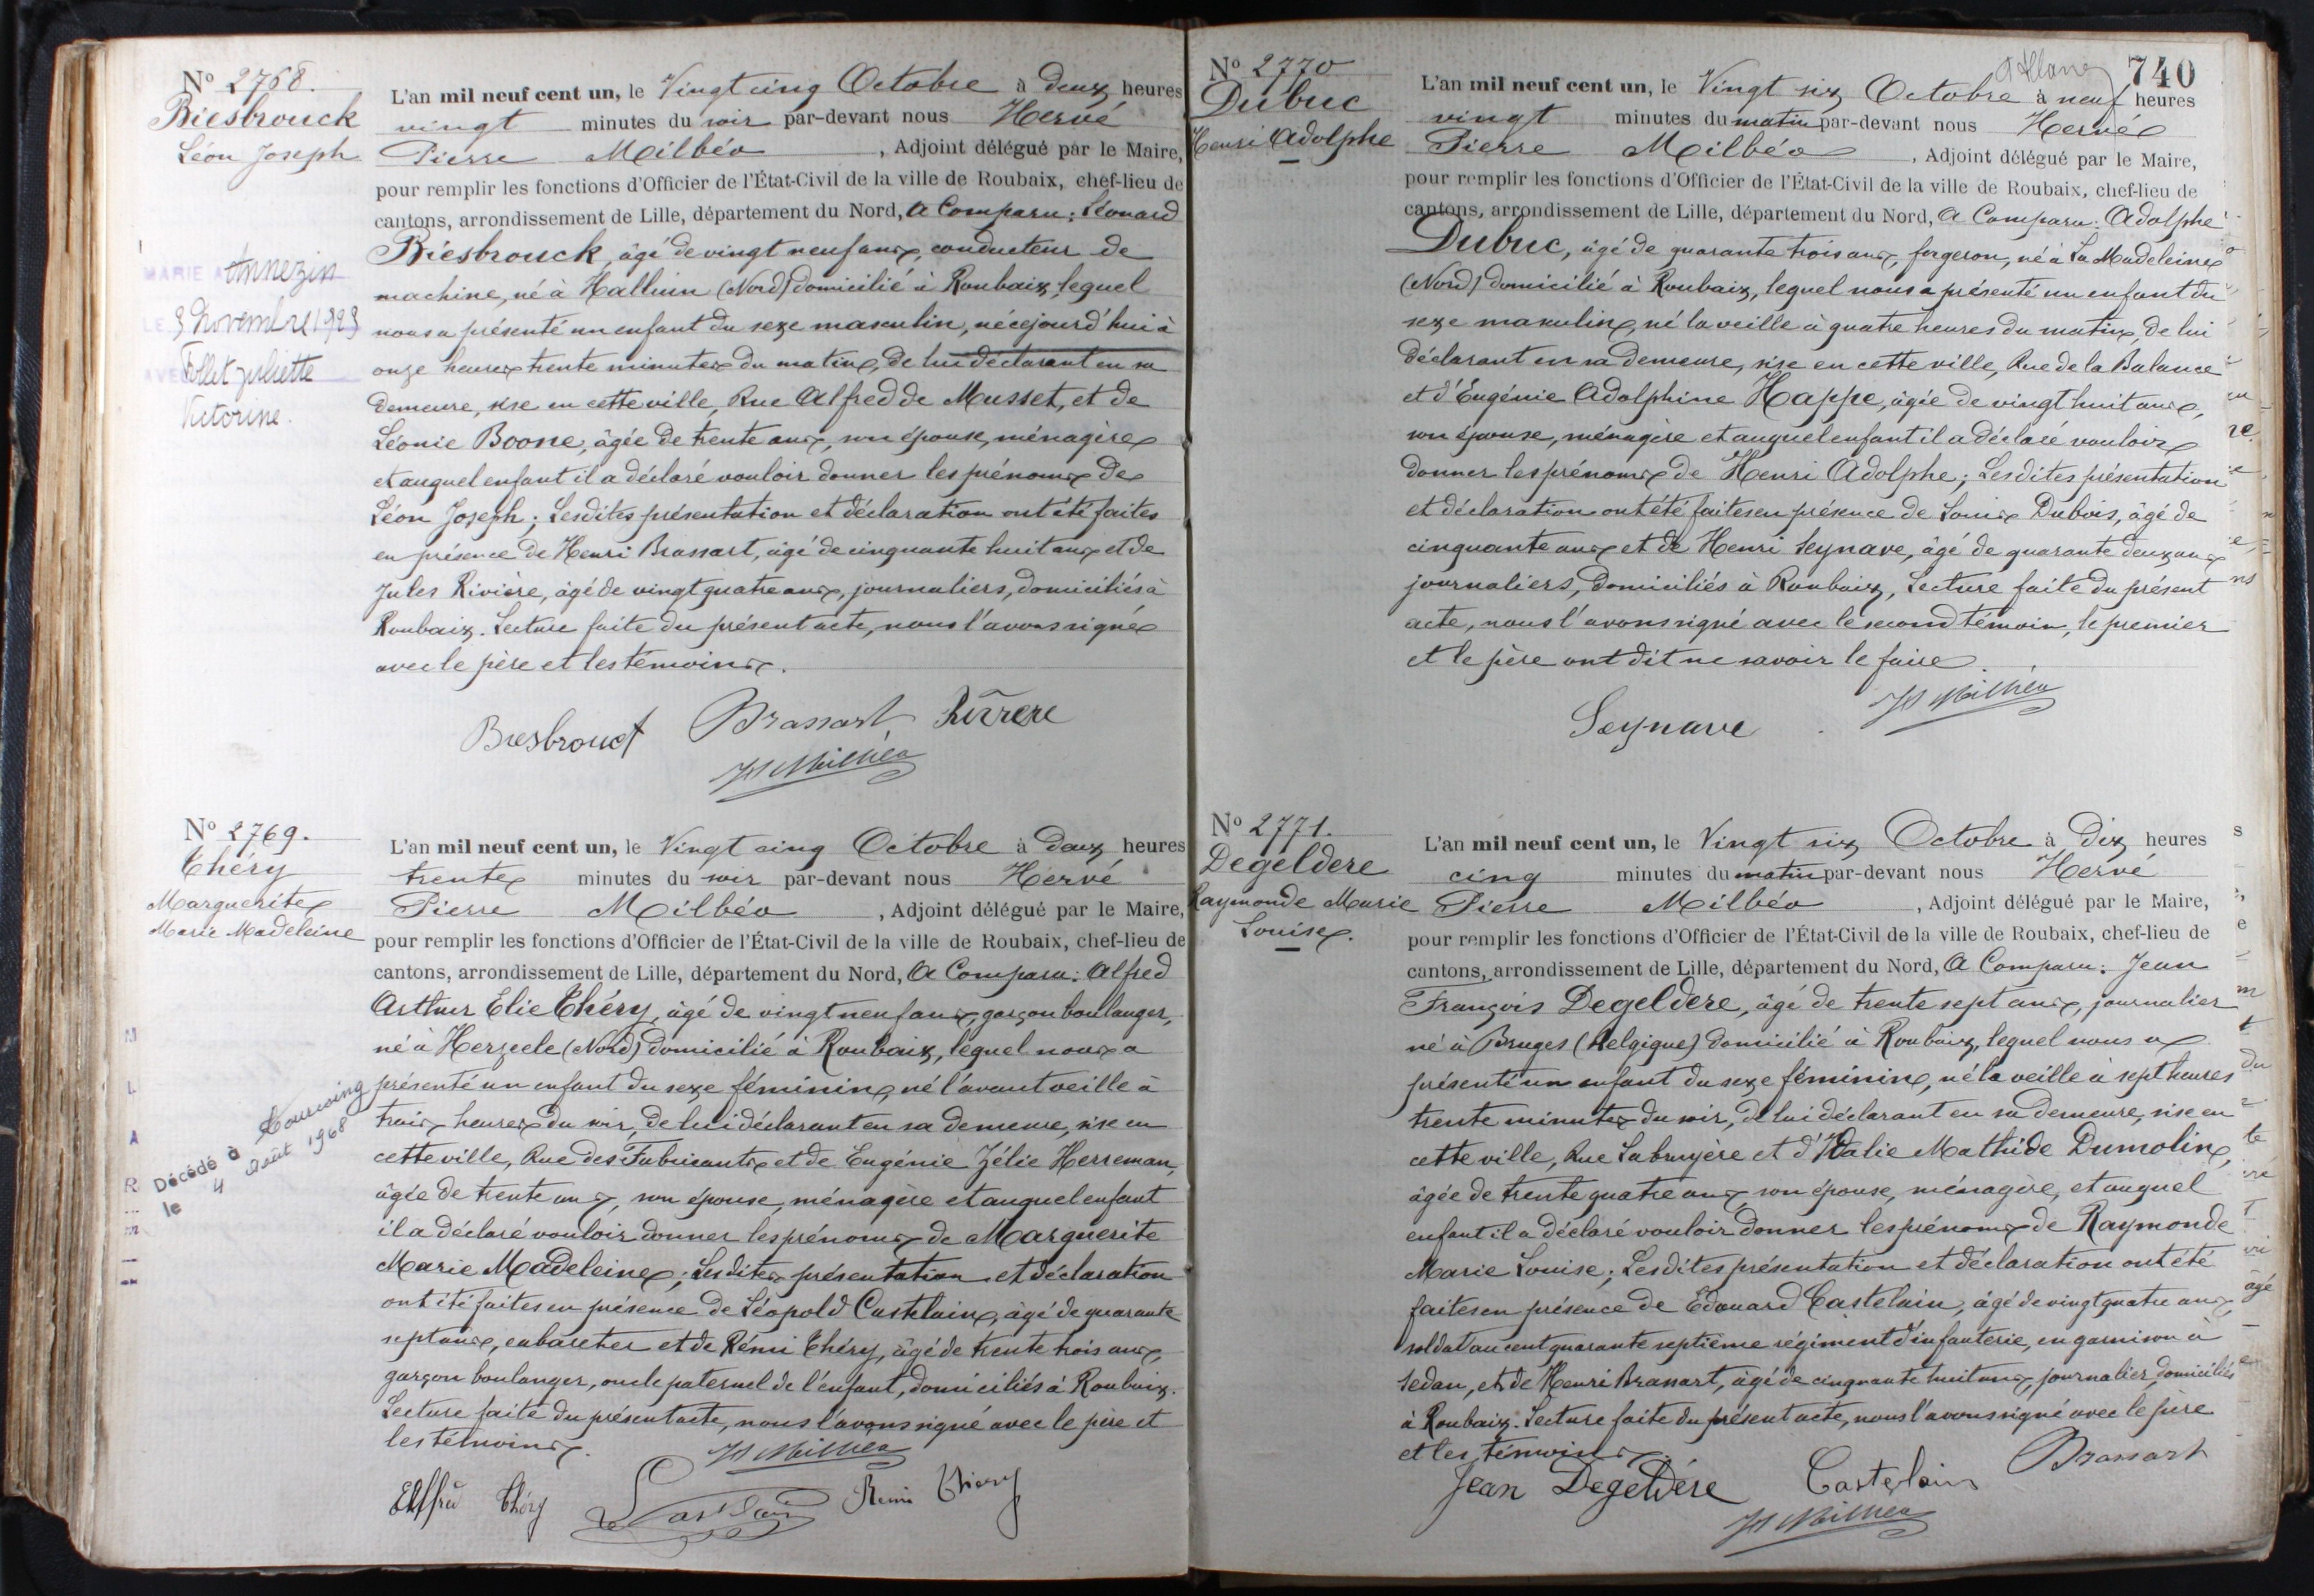 Nº 2768.
Biesbrouck
Léon Joseph
MARIÉ A Annezin
LE 9 Novembre 1923
AVEC Follet Juliette
Victorine.
L'an mil neuf cent un, le Vingt cinq Octobre à deux heures
vingt minutes du soir par-devant nous Hervé
Pierre Milbéo, Adjoint délégué par le Maire,
pour remplir les fonctions d'Officier de l'État-Civil de la ville de Roubaix, chef-lieu de
cantons, arrondissement de Lille, département du Nord, A Comparu: Léonard
Biesbrouck, âgé de vingt neuf ans, conducteur de
machine, né à Halluin (Nord) domicilié à Roubaix, lequel
nous a présenté un enfant du sexe masculin, né cejourd'hui à
onze heures trente minutes du matin, de lui déclarant en sa
demeure, sise en cette ville, Rue Alfred de Musset, et de
Léonie Boone, âgée de trente ans, son épouse, ménagère
et auquel enfant il a déclaré vouloir donner les prénoms de
Léon Joseph; Lesdites présentation et déclaration ont été faites
en présence de Henri Brassart, âgé de cinquante huit ans et de
Jules Rivière, âgé de vingt quatre ans, journaliers, domiciliés à
Roubaix. Lecture faite du présent acte, nous l'avons signé
avec le père et les témoins.
Biesbrouck Brassart Rivrere
H Milbéo
Nº 2769.
Théry
Marguerite
Marie Madeleine
Décédé à Tourcoing
le 4 Août 1968
L'an mil neuf cent un, le Vingt cinq Octobre à deux heures
trente minutes du soir par-devant nous Hervé
Pierre Milbéo, Adjoint délégué par le Maire,
pour remplir les fonctions d'Officier de l'État-Civil de la ville de Roubaix, chef-lieu de
cantons, arrondissement de Lille, département du Nord, A Comparu: Alfred
Arthur Elie Théry, âgé de vingt neuf ans, garçon boulanger,
né à Herzeele (Nord) domicilié à Roubaix, lequel nous a
présenté un enfant du sexe féminin, né l'avant veille à
trois heures du soir, de lui déclarant en sa demeure, sise en
cette ville, Rue des Fabricants et de Eugénie Zélie Herreman,
âgée de trente ans, son épouse, ménagère et auquel enfant
il a déclaré vouloir donner les prénoms de Marguerite
Marie Madeleine; Lesdites présentation et déclaration
ont été faites en présence de Léopold Castelain, âgé de quarante
sept ans, cabaretier et de Rémi Théry, âgé de trente trois ans,
garçon boulanger, oncle paternel de l'enfant, domiciliés à Roubaix.
Lecture faite du présent acte, nous l'avons signé avec le père et
les témoins.
H Milbéo
Théry Remi Thiery
740
Nº 2770
Dubuc
Henri Adolphe
L'an mil neuf cent un, le Vingt six Octobre à neuf heures
vingt minutes du matin par-devant nous Hervé
Pierre Milbéo, Adjoint délégué par le Maire,
pour remplir les fonctions d'Officier de l'État-Civil de la ville de Roubaix, chef-lieu de
cantons, arrondissement de Lille, département du Nord, A Comparu: Adolphe
Dubuc, âgé de quarante trois ans, forgeron, né à La Madeleine
(Nord) domicilié à Roubaix, lequel nous a présenté un enfant du
sexe masculin, né la veille à quatre heures du matin, de lui
déclarant en sa demeure, sise en cette ville, Rue de la Balance
et d'Eugénie Adolphine Happe, âgée de vingt huit ans,
son épouse, ménagère et auquel enfant il a déclaré vouloir
donner les prénoms de Henri Adolphe; Lesdites présentation
et déclaration ont été faites en présence de Louis Dubois, âgé de
cinquante ans et de Henri Seynave, âgé de quarante deux ans
journaliers, domiciliés à Roubaix, Lecture faite du présent
acte, nous l'avons signé avec le second témoin, le premier
et le père ont dit ne savoir le faire.
Seynave H Milbéo
Nº 2771.
Degeldere
Raymonde Marie
Louise.
L'an mil neuf cent un, le Vingt six Octobre à dix heures
cinq minutes du matin par-devant nous Hervé
Pierre Milbéo, Adjoint délégué par le Maire,
pour remplir les fonctions d'Officier de l'État-Civil de la ville de Roubaix, chef-lieu de
cantons, arrondissement de Lille, département du Nord, A Comparu: Jean
François Degeldere, âgé de trente sept ans, journalier
né à Bruges (Belgique) domicilié à Roubaix, lequel nous a
présenté un enfant du sexe féminin, né la veille à sept heures
trente minutes du soir, de lui déclarant en sa demeure, sise en
cette ville, Rue Labruyère et d'Italie Mathide Dumolin,
âgée de trente quatre ans, son épouse, ménagère, et auquel
enfant il a déclaré vouloir donner les prénoms de Raymonde
Marie Louise; Lesdites présentation et déclaration ont été
faites en présence de Edouard Castelain, âgé de vingt quatre ans,
soldat au cent quarante septième régiment d'infanterie, en garnison à
Sedan, et de Henri Brassart, âgé de cinquante huit ans, journalier, domiciliés
à Roubaix. Lecture faite du présent acte, nous l'avons signé avec le père
et les témoins.
Jean Degeldére Castelain Brassart
H Milbéo